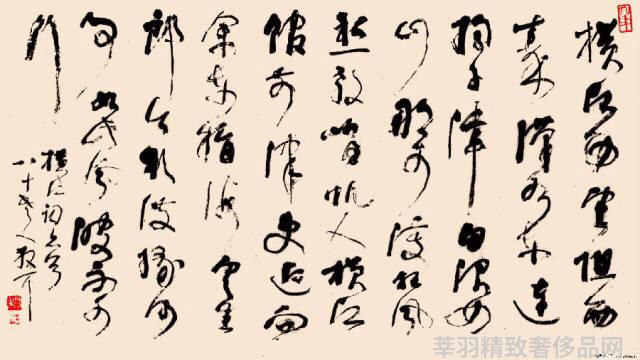 横江西望阻西
秦汉水东连
扬子津白浪如
山那可渡狂风
愁杀峭帆人横江
馆前津吏迎向
余东指海云生
郎今欲渡缘何
事如此风波不可
行
横江词二首
八十老人散耳
莘羽精致奢侈品网